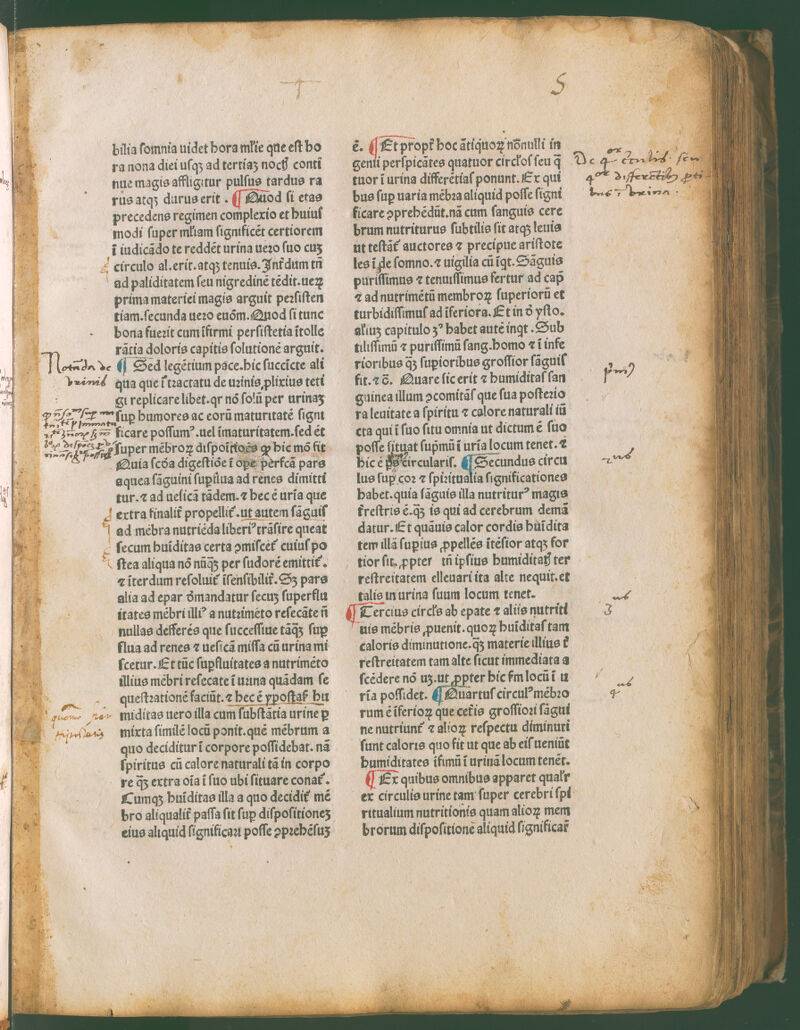 5
bilia somnia uidet hora mr̄ie que est ho
ra nona diei usqꝫ ad tertiaꝫ noct̄ꝭ conti
nue magis affligitur pulsus tardus ra
rus atqꝫ durus erit . ¶ Quod si etas
precedens regimen complexio et huius
modi super mr̄iam significēt certiorem
ī iudicādo te reddēt urina uero suo cuꝫ
circulo al.erit.atqꝫ tenuis.Int̄dum tn̄
ad paliditatem seu nigredinē tēdit.ueꝝ
prima materiei magis arguit persisten
tiam.secunda uero euōm.Quod si tunc
bona fuerit cum īfirmi persistētia ītolle
rātia doloris capitis solutionē arguit.
¶ Sed legētium pace.hic succīcte ali
qua que ī tractatu de urinis ꝓlixius teti
gi replicare libet.qr nō solū per urinaꝫ
sup humores ac eorū maturitatē signi
ficare possumꝰ.uel īmaturitatem.sed ēt
super mēbroꝝ dispōitiōes ꝙ hic mō fit
Quia scōa digestiōe ī ope perfcā pars
aquea sāguini supflua ad renes dimitti
tur.⁊ ad uesicā tādem.⁊ hec ē urīa que
extra finalit̄ propellit̄.ut autem sāguis
ad mēbra nutriēda liberiꝰ trāsire queat
secum huīditas certa ꝯmiscet̄ cuius po
stea aliqua nō nūqꝫ per sudorē emittit̄.
⁊ īterdum resoluit̄ īsensibilit̄.Sꝫ pars
alia ad epar d̄mandatur secus superflu
itates mēbri illiꝰ a nutrimēto resecāte n̄
nullas deferēs que successiue tāqꝫ sup
flua ad renes ⁊ uesicā missa cū urina mi
scetur.Et tūc supfluitates a nutrimēto
illius mēbri resecate ī urina quādam se
questrationē faciūt.⁊ hec ē ypostas̄ hu
miditas uero illa cum substātia urine ꝑ
mixta similē locū ponit.quē mēbrum a
quo deciditur ī corpore possidebat. nā
spiritus cū calore naturali tā in corpo
re qꝫ extra oīa ī suo ubi situare conat̄.
Cumqꝫ huīditas illa a quo decidit̄ mē
bro aliqualit̄ passa sit sup dispositioneꝫ
eius aliquid significari posse ꝯprehēsuꝫ
ē. ¶ Et propt̄ hoc ātiquoꝝ nōnulli in
genti perspicātes quatuor circl̄os seu q̄
tuor ī urina differētias ponunt.Ex qui
bus sup uaria mēbra aliquid posse signi
ficare ꝯprehēdūt.nā cum sanguis cere
brum nutriturus subtilis sit atqꝫ leuis
ut testāt̄ auctores ⁊ precipue aristote
les ī d̄ somno.⁊ uigilia cū īqt.Sāguis
purissimus ⁊ tenuissimus fertur ad cap̄
⁊ ad nutrimētū membroꝝ superiorū et
turbidissimus ad īferiora.Et in ō ysto.
al̄iuꝫ capitulo ꝫꝰ habet autē inqt.Sub
tilissimū ⁊ purissimū sang.homo ⁊ ī infe
rioribus qꝫ supioribus grossior sāguis
fit.⁊ c̄. Quare sic erit ⁊ humiditas san
guinea illum ꝯcomitās que sua posterio
ra leuitate a spiritu ⁊ calore naturali iū
cta qui ī suo situ omnia ut dictum ē suo
posse situat supmū ī urīa locum tenet.⁊
hic ē circularis. ¶ Secundus circu
lus sup cor ⁊ spiritualia significationes
habet.quia sāguis illa nutriturꝰ magis
t̄restris ē.qꝫ is qui ad cerebrum demā
datur.Et quāuis calor cordis huīdita
tem illā supius ꝓpellēs ītēsior atqꝫ for
tior sit.ꝓpter tn̄ ipsius humiditat̄ ter
restreitatem elleuari ita alte nequit.et
talis in urina suum locum tenet.
¶ Tercius circl̄s ab epate ⁊ aliis nutriti
uis mēbris ꝓuenit.quoꝝ huīditas tam
caloris diminutione.qꝫ materie illius t̄
restreitatem tam alte sicut immediata a
scēdere nō uꝫ.ut ꝓpter hic sm locū ī u
rīa possidet. ¶ Quartus circulꝰ mēbro
rum ē īferioꝝ que cet̄is grossiori sāgui
ne nutriunt̄ ⁊ alioꝝ respectu diminuti
sunt caloris quo fit ut que ab eis ueniūt
humiditates īfimū ī urinā locum tenēt.
¶ Ex quibus omnibus apparet qualr̄
ex circulis urine tam super cerebri spi
ritualium nutritionis quam alioꝝ mem
brorum dispositionē aliquid significar̄